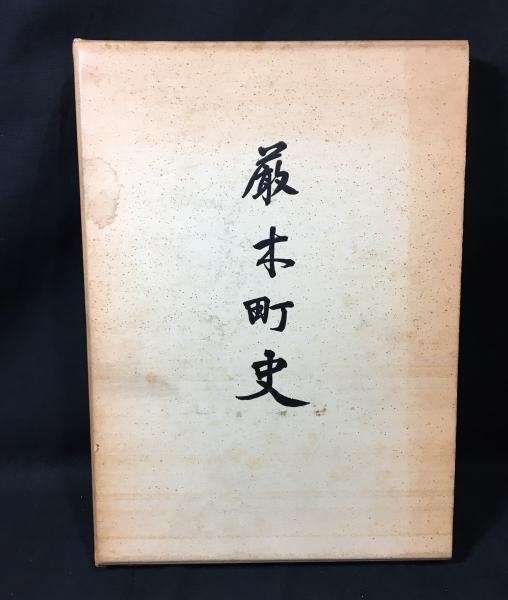 厳木町史